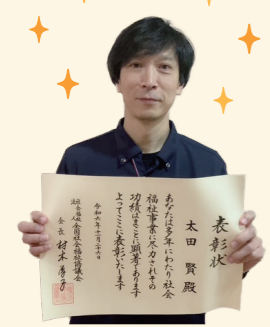 表彰状
太田 賢 殿
あなたは多年にわたり社会
福祉事業に尽力されその
功績はまことに顕著であります
よってここに表彰いたします
令和六年十一月二十六日
社会福祉法人 全国社会福祉協議会
会長 村木 厚子